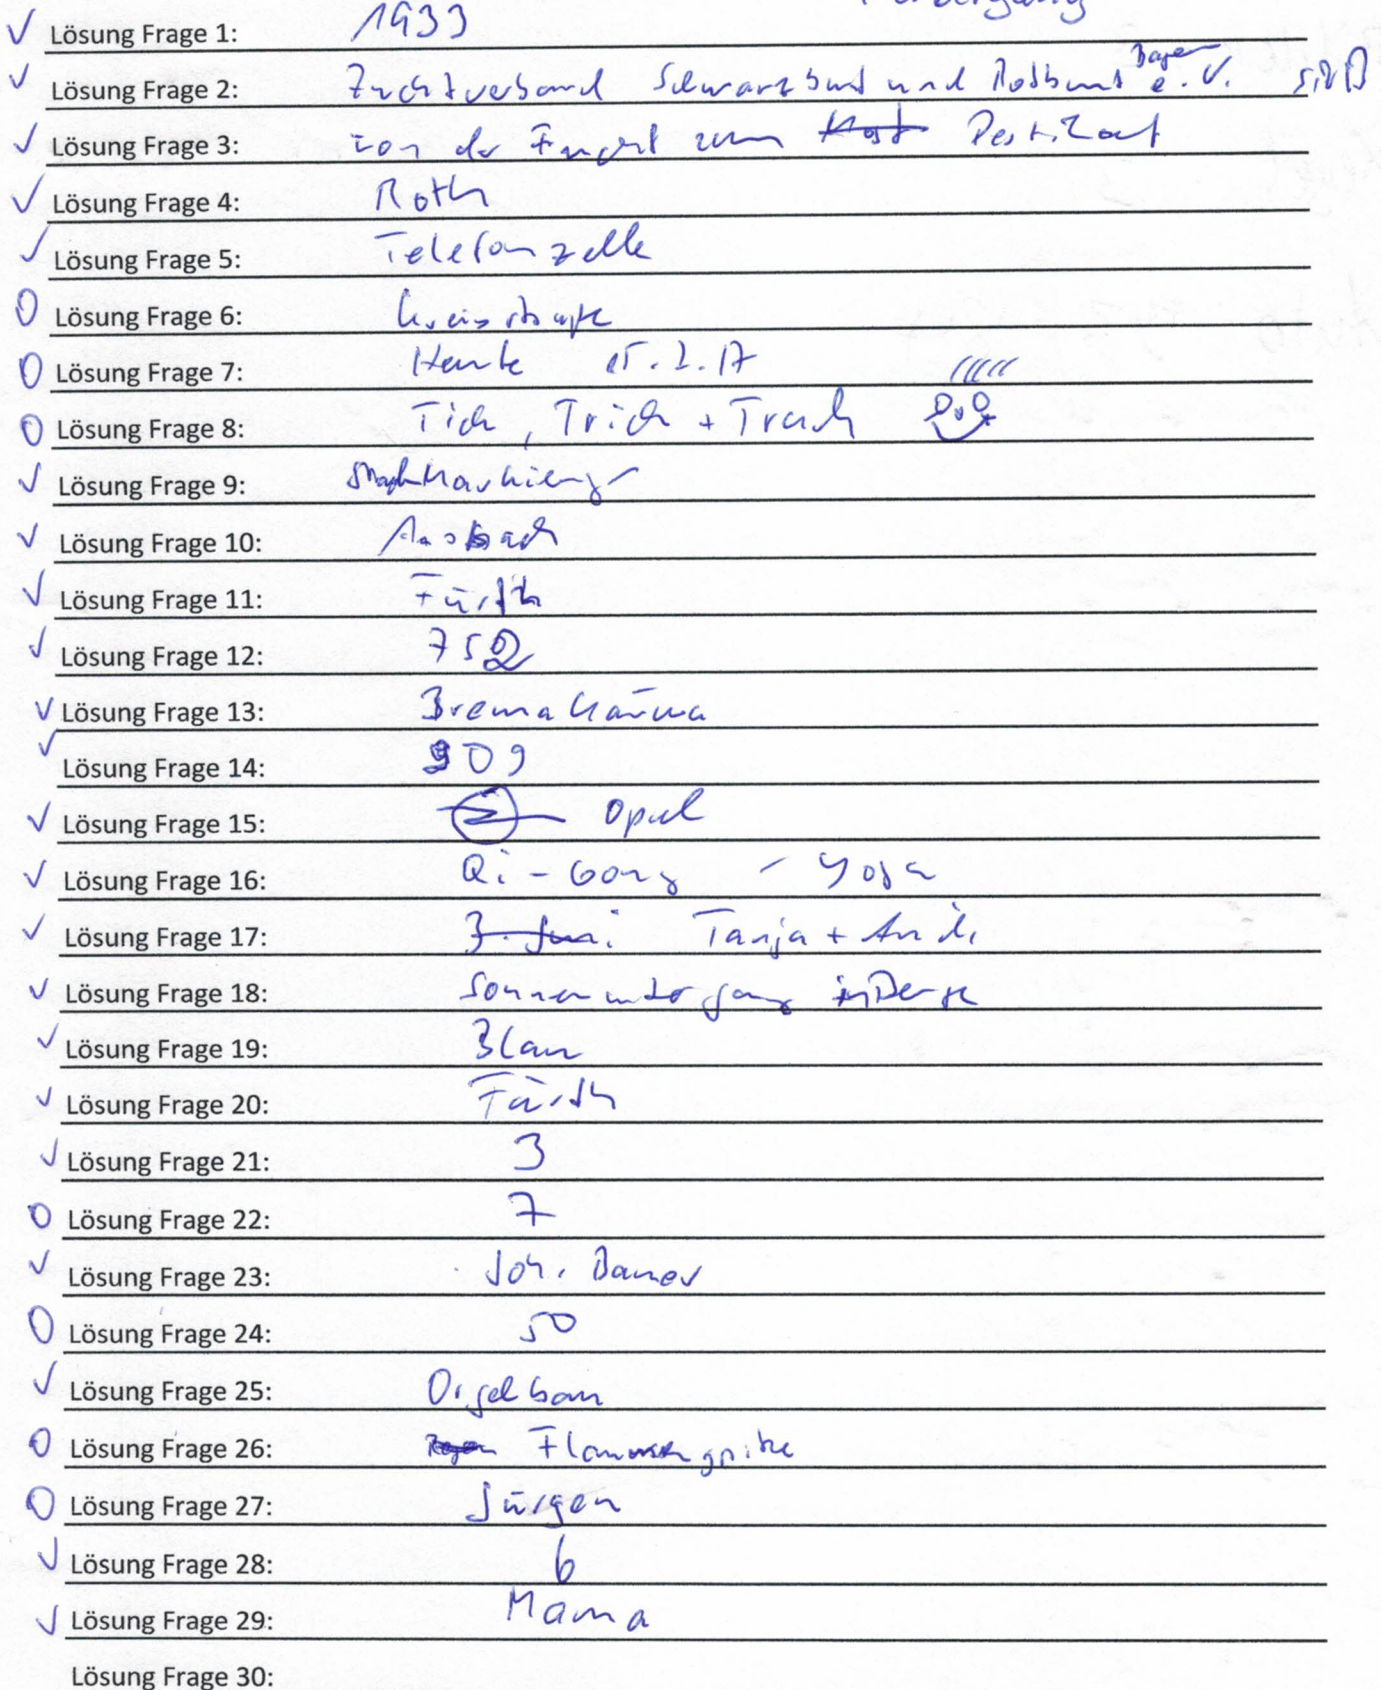 Lösung Frage 1: 1933
Lösung Frage 2: Zuchtverband Schwarzbunt und Rotbunt Bayern e.V.
Lösung Frage 3: von der zum
Lösung Frage 4: Roth
Lösung Frage 5: Telefonzelle
Lösung Frage 6: Kreisstraße
Lösung Frage 7: Heute 15.2.17
Lösung Frage 8: Tick, Trick + Track
Lösung Frage 9:
Lösung Frage 10: Ansbach
Lösung Frage 11: Fürth
Lösung Frage 12: 752
Lösung Frage 13:
Lösung Frage 14: 909
Lösung Frage 15: Opel
Lösung Frage 16: Qi-Gong - Yoga
Lösung Frage 17: 3. Juni Tanja + Andi
Lösung Frage 18: Sonnenuntergang
Lösung Frage 19: Blau
Lösung Frage 20: Fürth
Lösung Frage 21: 3
Lösung Frage 22: 7
Lösung Frage 23: Joh. Bauer
Lösung Frage 24: 50
Lösung Frage 25: Orgelbau
Lösung Frage 26:
Lösung Frage 27: Jürgen
Lösung Frage 28: 6
Lösung Frage 29: Mama
Lösung Frage 30: